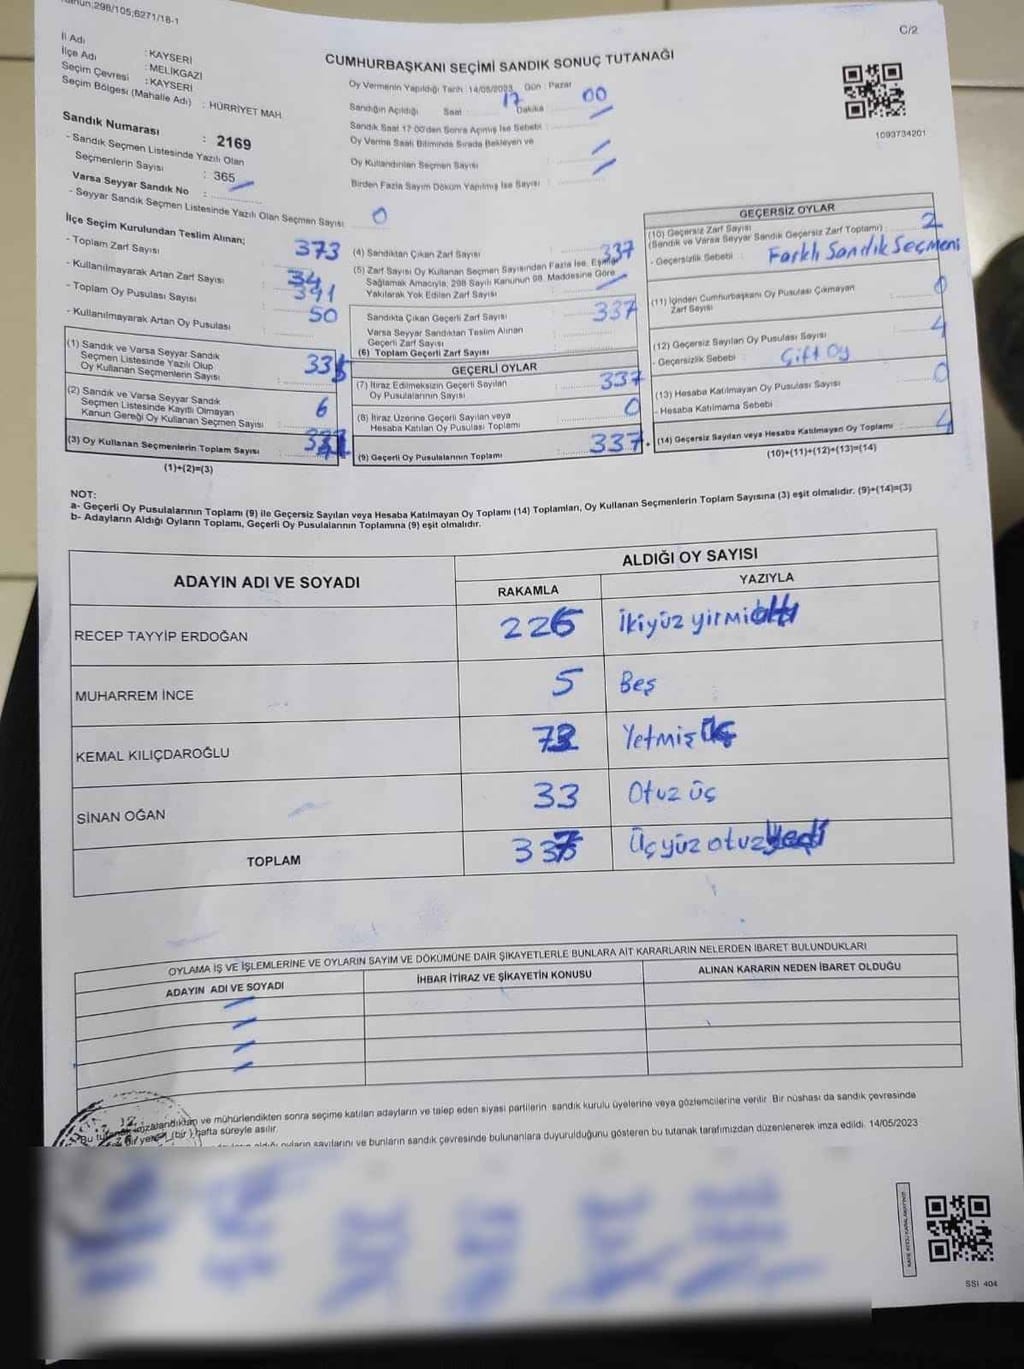 Kanun;298/105;6271/18-1
C/2
İl Adı : KAYSERİ
İlçe Adı : MELİKGAZİ
Seçim Çevresi : KAYSERİ
Seçim Bölgesi (Mahalle Adı) : HÜRRİYET MAH.
CUMHURBAŞKANI SEÇİMİ SANDIK SONUÇ TUTANAĞI
Oy Vermenin Yapıldığı Tarih: 14/05/2023 Gün : Pazar
Sandığın Açıldığı Saat 17 Dakika 00
Sandık Saat 17:00'den Sonra Açılmış İse Sebebi
Oy Verme Saati Bitiminde Sırada Bekleyen ve
Oy Kullandırılan Seçmen Sayısı
Birden Fazla Sayım Döküm Yapılmış İse Sayısı
1093734201
Sandık Numarası : 2169
- Sandık Seçmen Listesinde Yazılı Olan
Seçmenlerin Sayısı : 365
Varsa Seyyar Sandık No :
- Seyyar Sandık Seçmen Listesinde Yazılı Olan Seçmen Sayısı 0
İlçe Seçim Kurulundan Teslim Alınan;
- Toplam Zarf Sayısı 373
- Kullanılmayarak Artan Zarf Sayısı 34
- Toplam Oy Pusulası Sayısı 391
- Kullanılmayarak Artan Oy Pusulası 50
(1) Sandık ve Varsa Seyyar Sandık
Seçmen Listesinde Yazılı Olup
Oy Kullanan Seçmenlerin Sayısı
(2) Sandık ve Varsa Seyyar Sandık
Seçmen Listesinde Kayıtlı Olmayan
Kanun Gereği Oy Kullanan Seçmen Sayısı 6
(3) Oy Kullanan Seçmenlerin Toplam Sayısı
(1)+(2)=(3)
(4) Sandıktan Çıkan Zarf Sayısı 337
(5) Zarf Sayısı Oy Kullanan Seçmen Sayısından Fazla İse, Eşitliği
Sağlamak Amacıyla; 298 Sayılı Kanunun 98. Maddesine Göre
Yakılarak Yok Edilen Zarf Sayısı
Sandıkta Çıkan Geçerli Zarf Sayısı 337
Varsa Seyyar Sandıktan Teslim Alınan
Geçerli Zarf Sayısı
(6) Toplam Geçerli Zarf Sayısı
GEÇERLİ OYLAR
(7) İtiraz Edilmeksizin Geçerli Sayılan
Oy Pusulalarının Sayısı 337
(8) İtiraz Üzerine Geçerli Sayılan veya
Hesaba Katılan Oy Pusulası Toplamı 0
(9) Geçerli Oy Pusulalarının Toplamı 337
GEÇERSİZ OYLAR
(10) Geçersiz Zarf Sayısı
(Sandık ve Varsa Seyyar Sandık Geçersiz Zarf Toplamı) 2
- Geçersizlik Sebebi : Farklı Sandık Seçmeni
(11) İçinden Cumhurbaşkanı Oy Pusulası Çıkmayan
Zarf Sayısı 0
(12) Geçersiz Sayılan Oy Pusulası Sayısı 4
- Geçersizlik Sebebi : Çift Oy
(13) Hesaba Katılmayan Oy Pusulası Sayısı 0
- Hesaba Katılmama Sebebi
(14) Geçersiz Sayılan veya Hesaba Katılmayan Oy Toplamı 4
(10)+(11)+(12)+(13)=(14)
NOT:
a- Geçerli Oy Pusulalarının Toplamı (9) ile Geçersiz Sayılan veya Hesaba Katılmayan Oy Toplamı (14) Toplamları, Oy Kullanan Seçmenlerin Toplam Sayısına (3) eşit olmalıdır. (9)+(14)=(3)
b- Adayların Aldığı Oyların Toplamı, Geçerli Oy Pusulalarının Toplamına (9) eşit olmalıdır.
ADAYIN ADI VE SOYADI
ALDIĞI OY SAYISI
RAKAMLA
YAZIYLA
RECEP TAYYİP ERDOĞAN 226 İkiyüz yirmi altı
MUHARREM İNCE 5 Beş
KEMAL KILIÇDAROĞLU 73 Yetmiş üç
SİNAN OĞAN 33 Otuz üç
TOPLAM 337 Üçyüz otuz yedi
OYLAMA İŞ VE İŞLEMLERİNE VE OYLARIN SAYIM VE DÖKÜMÜNE DAİR ŞİKAYETLERLE BUNLARA AİT KARARLARIN NELERDEN İBARET BULUNDUKLARI
ADAYIN ADI VE SOYADI
İHBAR İTİRAZ VE ŞİKAYETİN KONUSU
ALINAN KARARIN NEDEN İBARET OLDUĞU
Bu tutanak imzalandıktan ve mühürlendikten sonra seçime katılan adayların ve talep eden siyasi partilerin sandık kurulu üyelerine veya gözlemcilerine verilir. Bir nüshası da sandık çevresinde
bir yerine (bir) hafta süreyle asılır.
aldığı oyların sayılarını ve bunların sandık çevresinde bulunanlara duyurulduğunu gösteren bu tutanak tarafımızdan düzenlenerek imza edildi. 14/05/2023
SSI 404